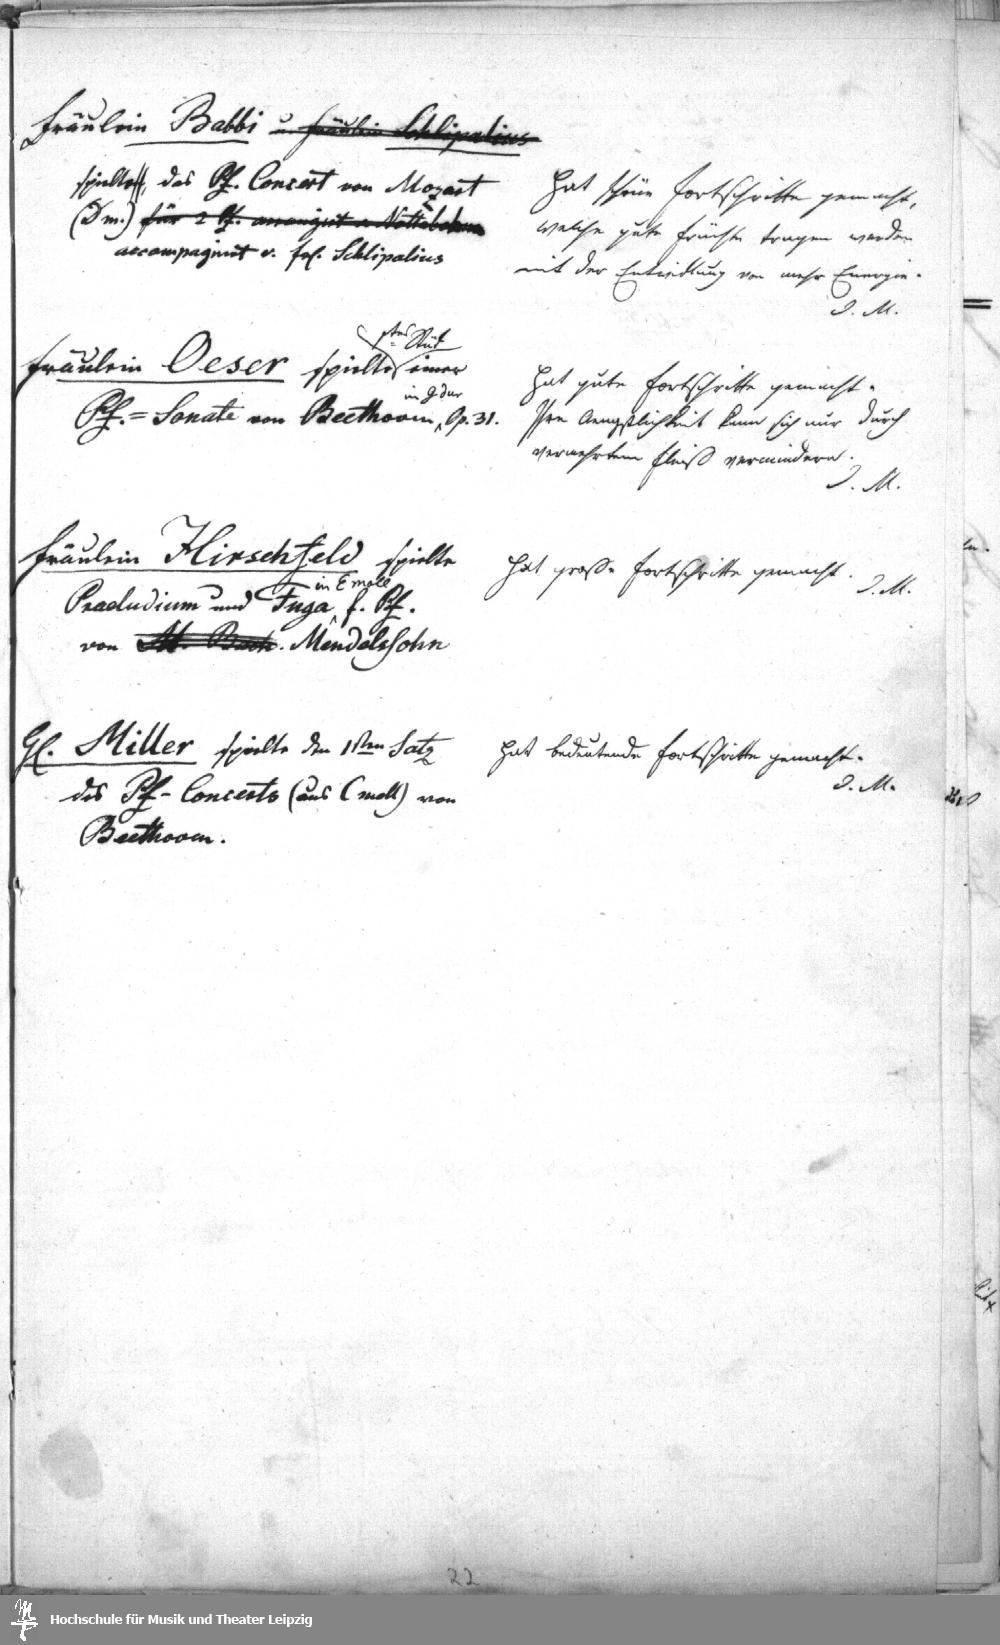 Fräulein Babbi u Fräulein Schlipalius
spielte, das Pf. Concert von Mozart
(Dm.) für 2 Pf. arrangirt v. Nottebohm
accompagnirt v. Frl. Schlipalius
Hat schöne Fortschritte gemacht,
welche gute Früchte tragen werden
mit der Entwicklung von mehr Energie.
I. M.
Fräulein Oeser spielte 1stes Stück einer
Pf.=Sonate von Beethoven, in G dur Op. 31.
Hat gute Fortschritte gemacht.
Ihre Aengstlichkeit kann sich nur durch
vermehrtem Fleiß vermindern.
I. M.
Fräulein Hirschfeld spielte
Praeludium und Fuga in E moll f. Pf.
von Mendelssohn
Hat große Fortschritte gemacht.
I. M.
H. Miller spielte den 1sten Satz
des Pf-Concerts (aus C moll) von
Beethoven.
Hat bedeutende Fortschritte gemacht.
I. M.
22
Hochschule für Musik und Theater Leipzig